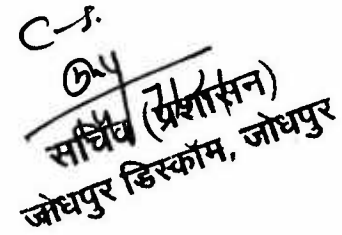 C-S.
सचिव (प्रशासन)
जोधपुर डिस्कॉम, जोधपुर